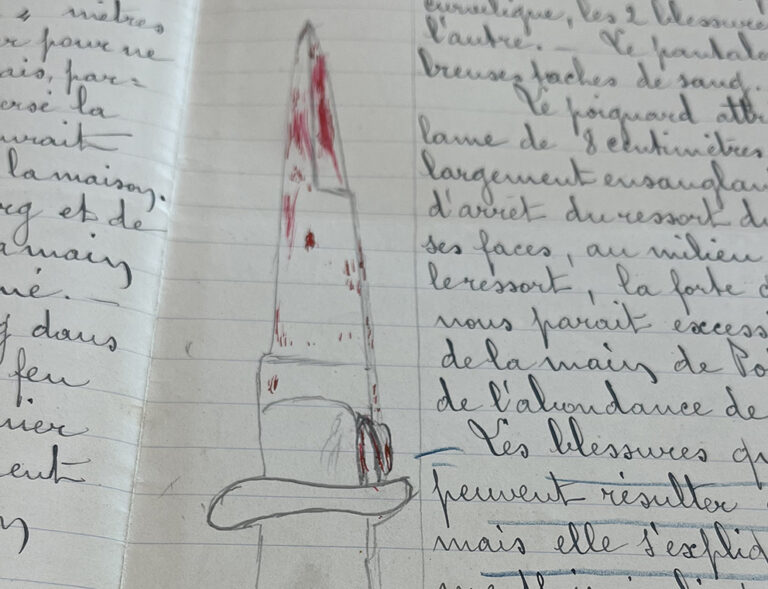 mètres
r pour ne
ais, par=
ersé la
urait
la maison.
rg et de
a main
né. —
dans
feu
nier
ent
les 2 blessure
l'autre. — Le pantalo
breuses taches de sang.
Le poignard attr
lame de 8 centimètres
largement ensanglan
d'arrêt du ressort du
ses faces, au milieu
le ressort, la forte
nous parait excess
de la main de Po
de l'abondance de
— Les blessures qu
peuvent résulter
mais elle s'expliq